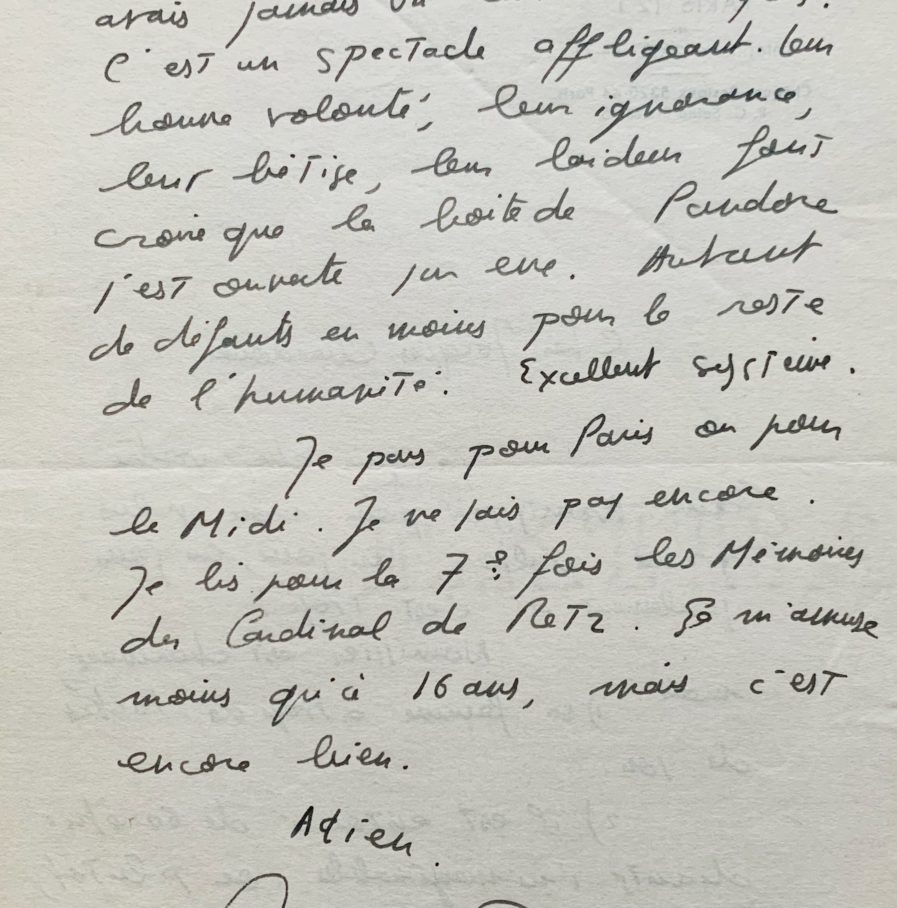 avais jamais vu
C'est un spectacle affligeant. Leur
bonne volonté, leur ignorance,
leur bêtise, leur laideur font
croire que la boite de Pandore
s'est ouverte sur eux. Autant
de défauts en moins pour le reste
de l'humanité. Excellent système.
Je pars pour Paris ou pour
le Midi. Je ne sais pas encore.
Je lis pour la 7e fois les Mémoires
du Cardinal de Retz. Ça m'amuse
moins qu'à 16 ans, mais c'est
encore bien.
Adieu.